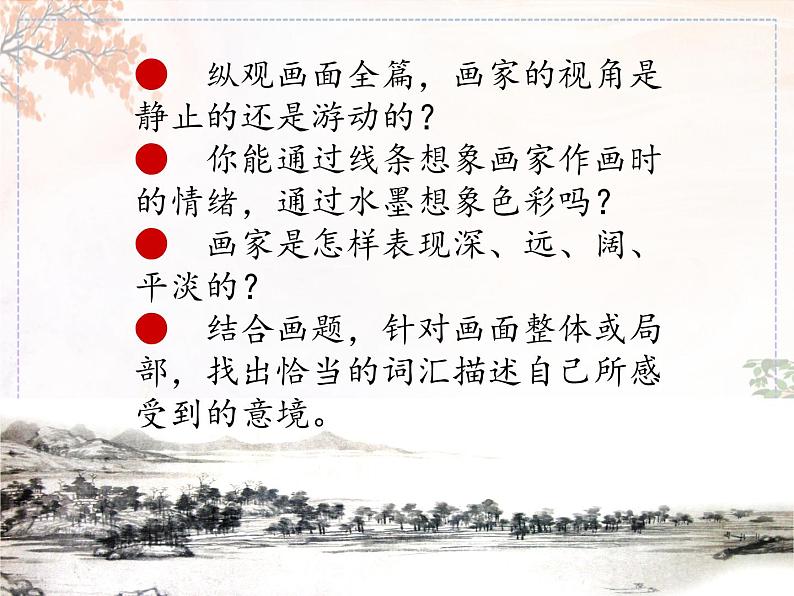 ● 纵观画面全篇，画家的视角是
静止的还是游动的？
● 你能通过线条想象画家作画时
的情绪，通过水墨想象色彩吗？
● 画家是怎样表现深、远、阔、
平淡的？
● 结合画题，针对画面整体或局
部，找出恰当的词汇描述自己所感
受到的意境。